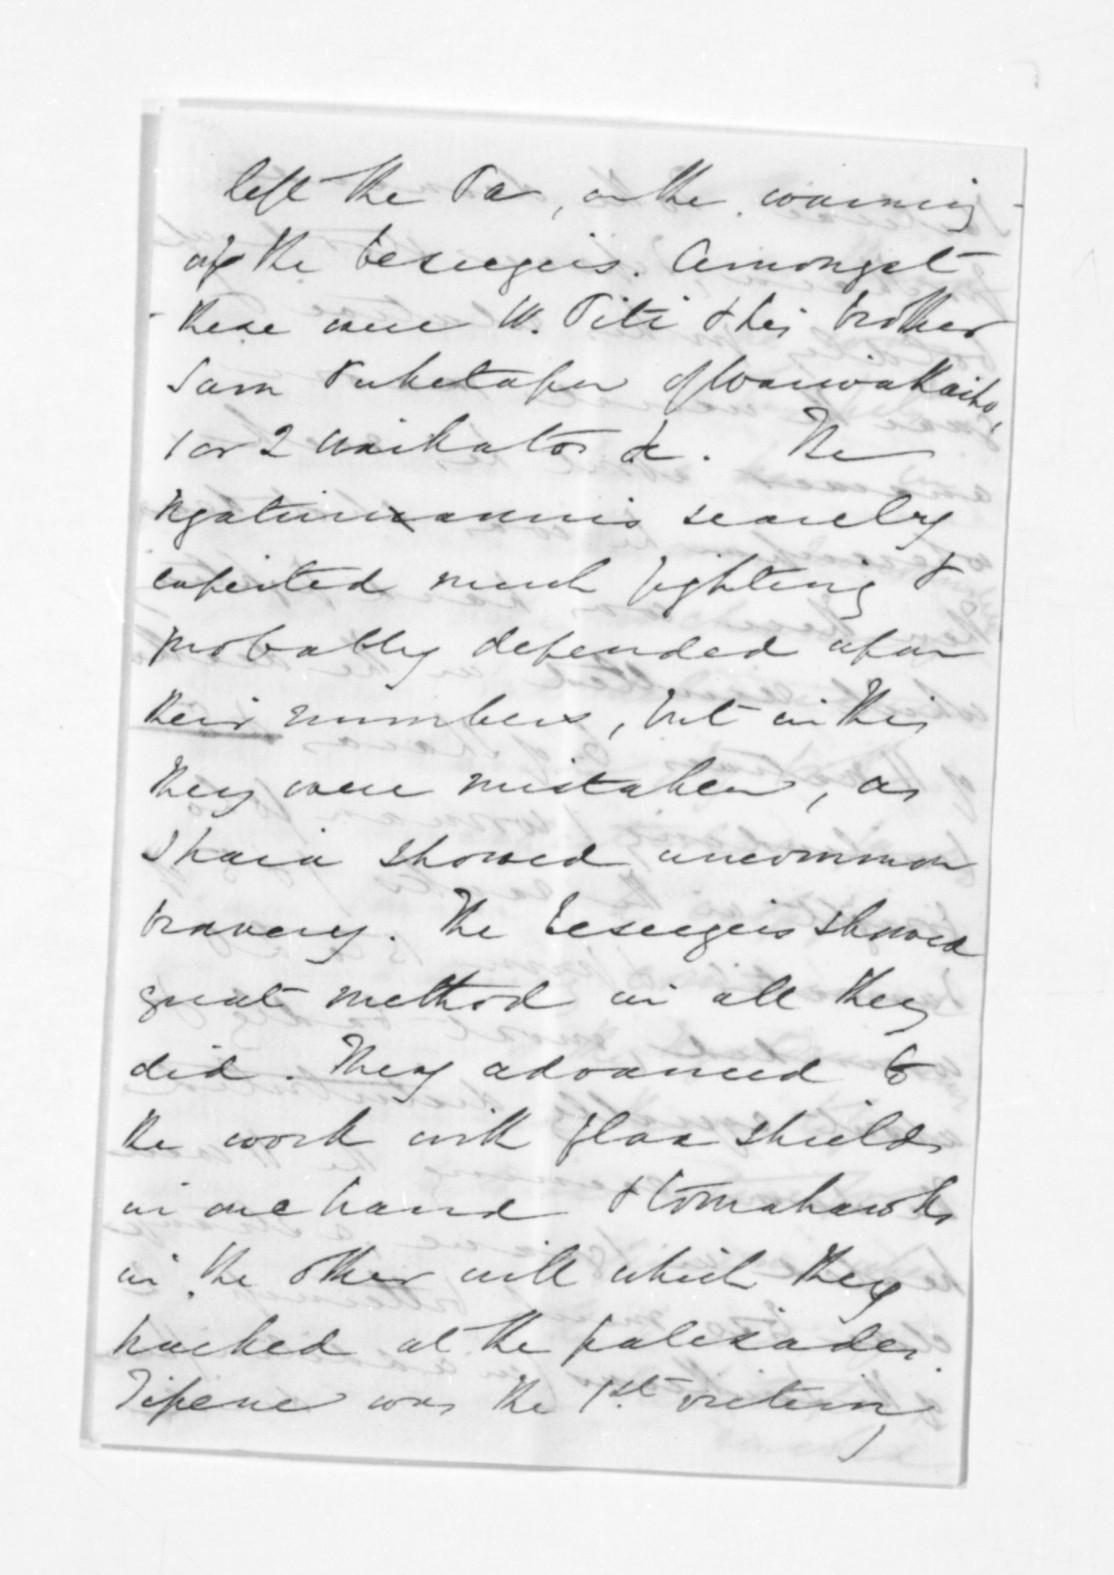 left the Pa, on the warning
of the beseigers. Amongst
these were W. Piti & his brother
Sam Puketapu of Waiwakaiho,
1 or 2 Waikatos &c. The
scarcely
expected much fighting &
probably depended upon
their numbers, but in this
they were mistaken, as
Ihaia showed uncommon
bravery. The beseigers showed
great method in all they
did. They advanced to
the work with flax shields
in one hand & tomahawks
in the other with which they
hacked at the palisades.
Tipene was the 1st victim,